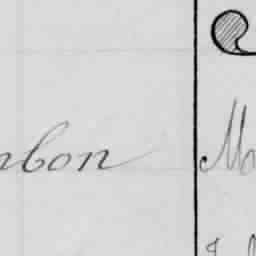 nbon Ma